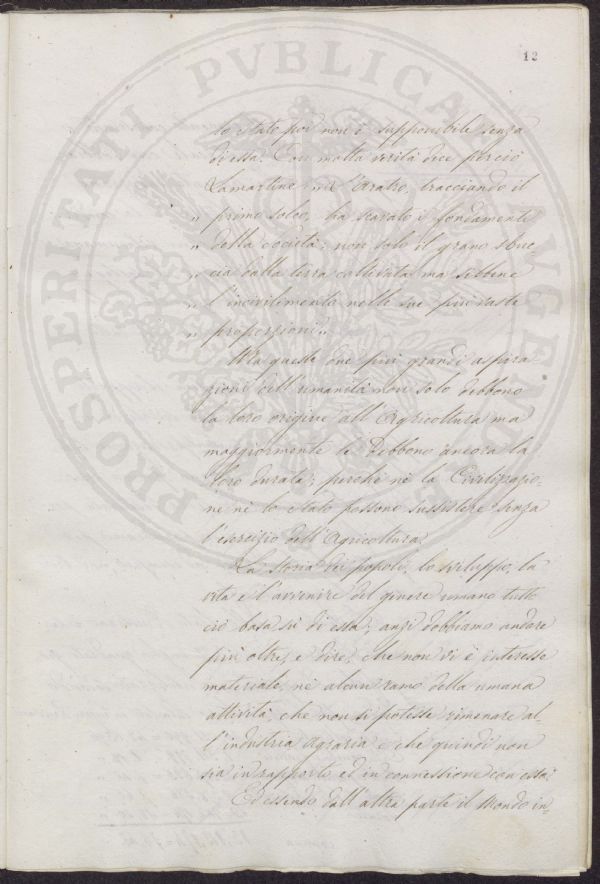 12
PROSPERITATI PVBLICAE AVGENDAE
lo stato poi non è supponibile senza
di essa. Con molta verità dice perciò
Lamartine "nè l'Aratro, tracciando il
" primo solco, ha scavato i fondamenti
" della società; non solo il grano sbuc-
" cia dalla terra coltivata ma sibbene
" l'incivilimento nelle sue più vaste
" proporzioni".
Ma queste due più grandi aspira
zioni dell'umanità non solo debbono
la loro origine all'Agricoltura ma
maggiormente le debbono ancora la
loro durata; perchè nè la Civilizazio-
ne nè lo stato possono sussistere senza
l'esercizio dell'Agricoltura.
La storia dei popoli, lo sviluppo, la
vita e l'avvenire del genere umano tutto
ciò basa sù di essa; anzi dobbiamo andare
più oltre, e dire, che non vi è interesse
materiale, nè alcun ramo della umana
attività, che non si potesse rimenare al-
l'industria agraria e che quindi non
sia in rapporto ed in connessione con essa.
Ed essendo dall'altra parte il Mondo in-